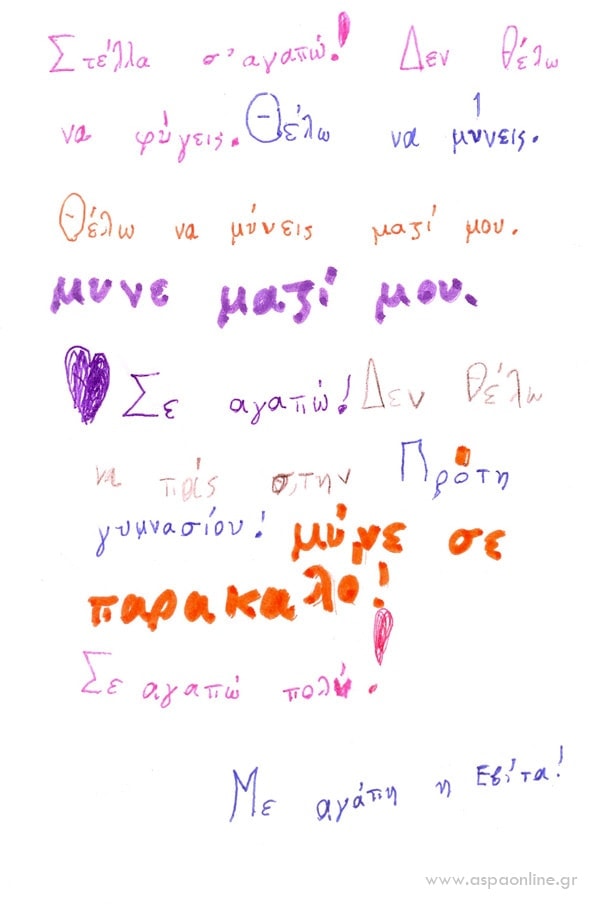 Στέλλα σ'αγαπώ! Δεν θέλω
να φύγεις. Θέλω να μύνεις.
Θέλω να μύνεις μαζί μου.
μυνε μαζί μου.
Σε αγαπώ! Δεν θέλω
να πάς στην Πρότη
γυμνασίου! μύνε σε
παρακαλο!
Σε αγαπώ πολύ.
Με αγάπη η Εβίτα!
www.aspaonline.gr